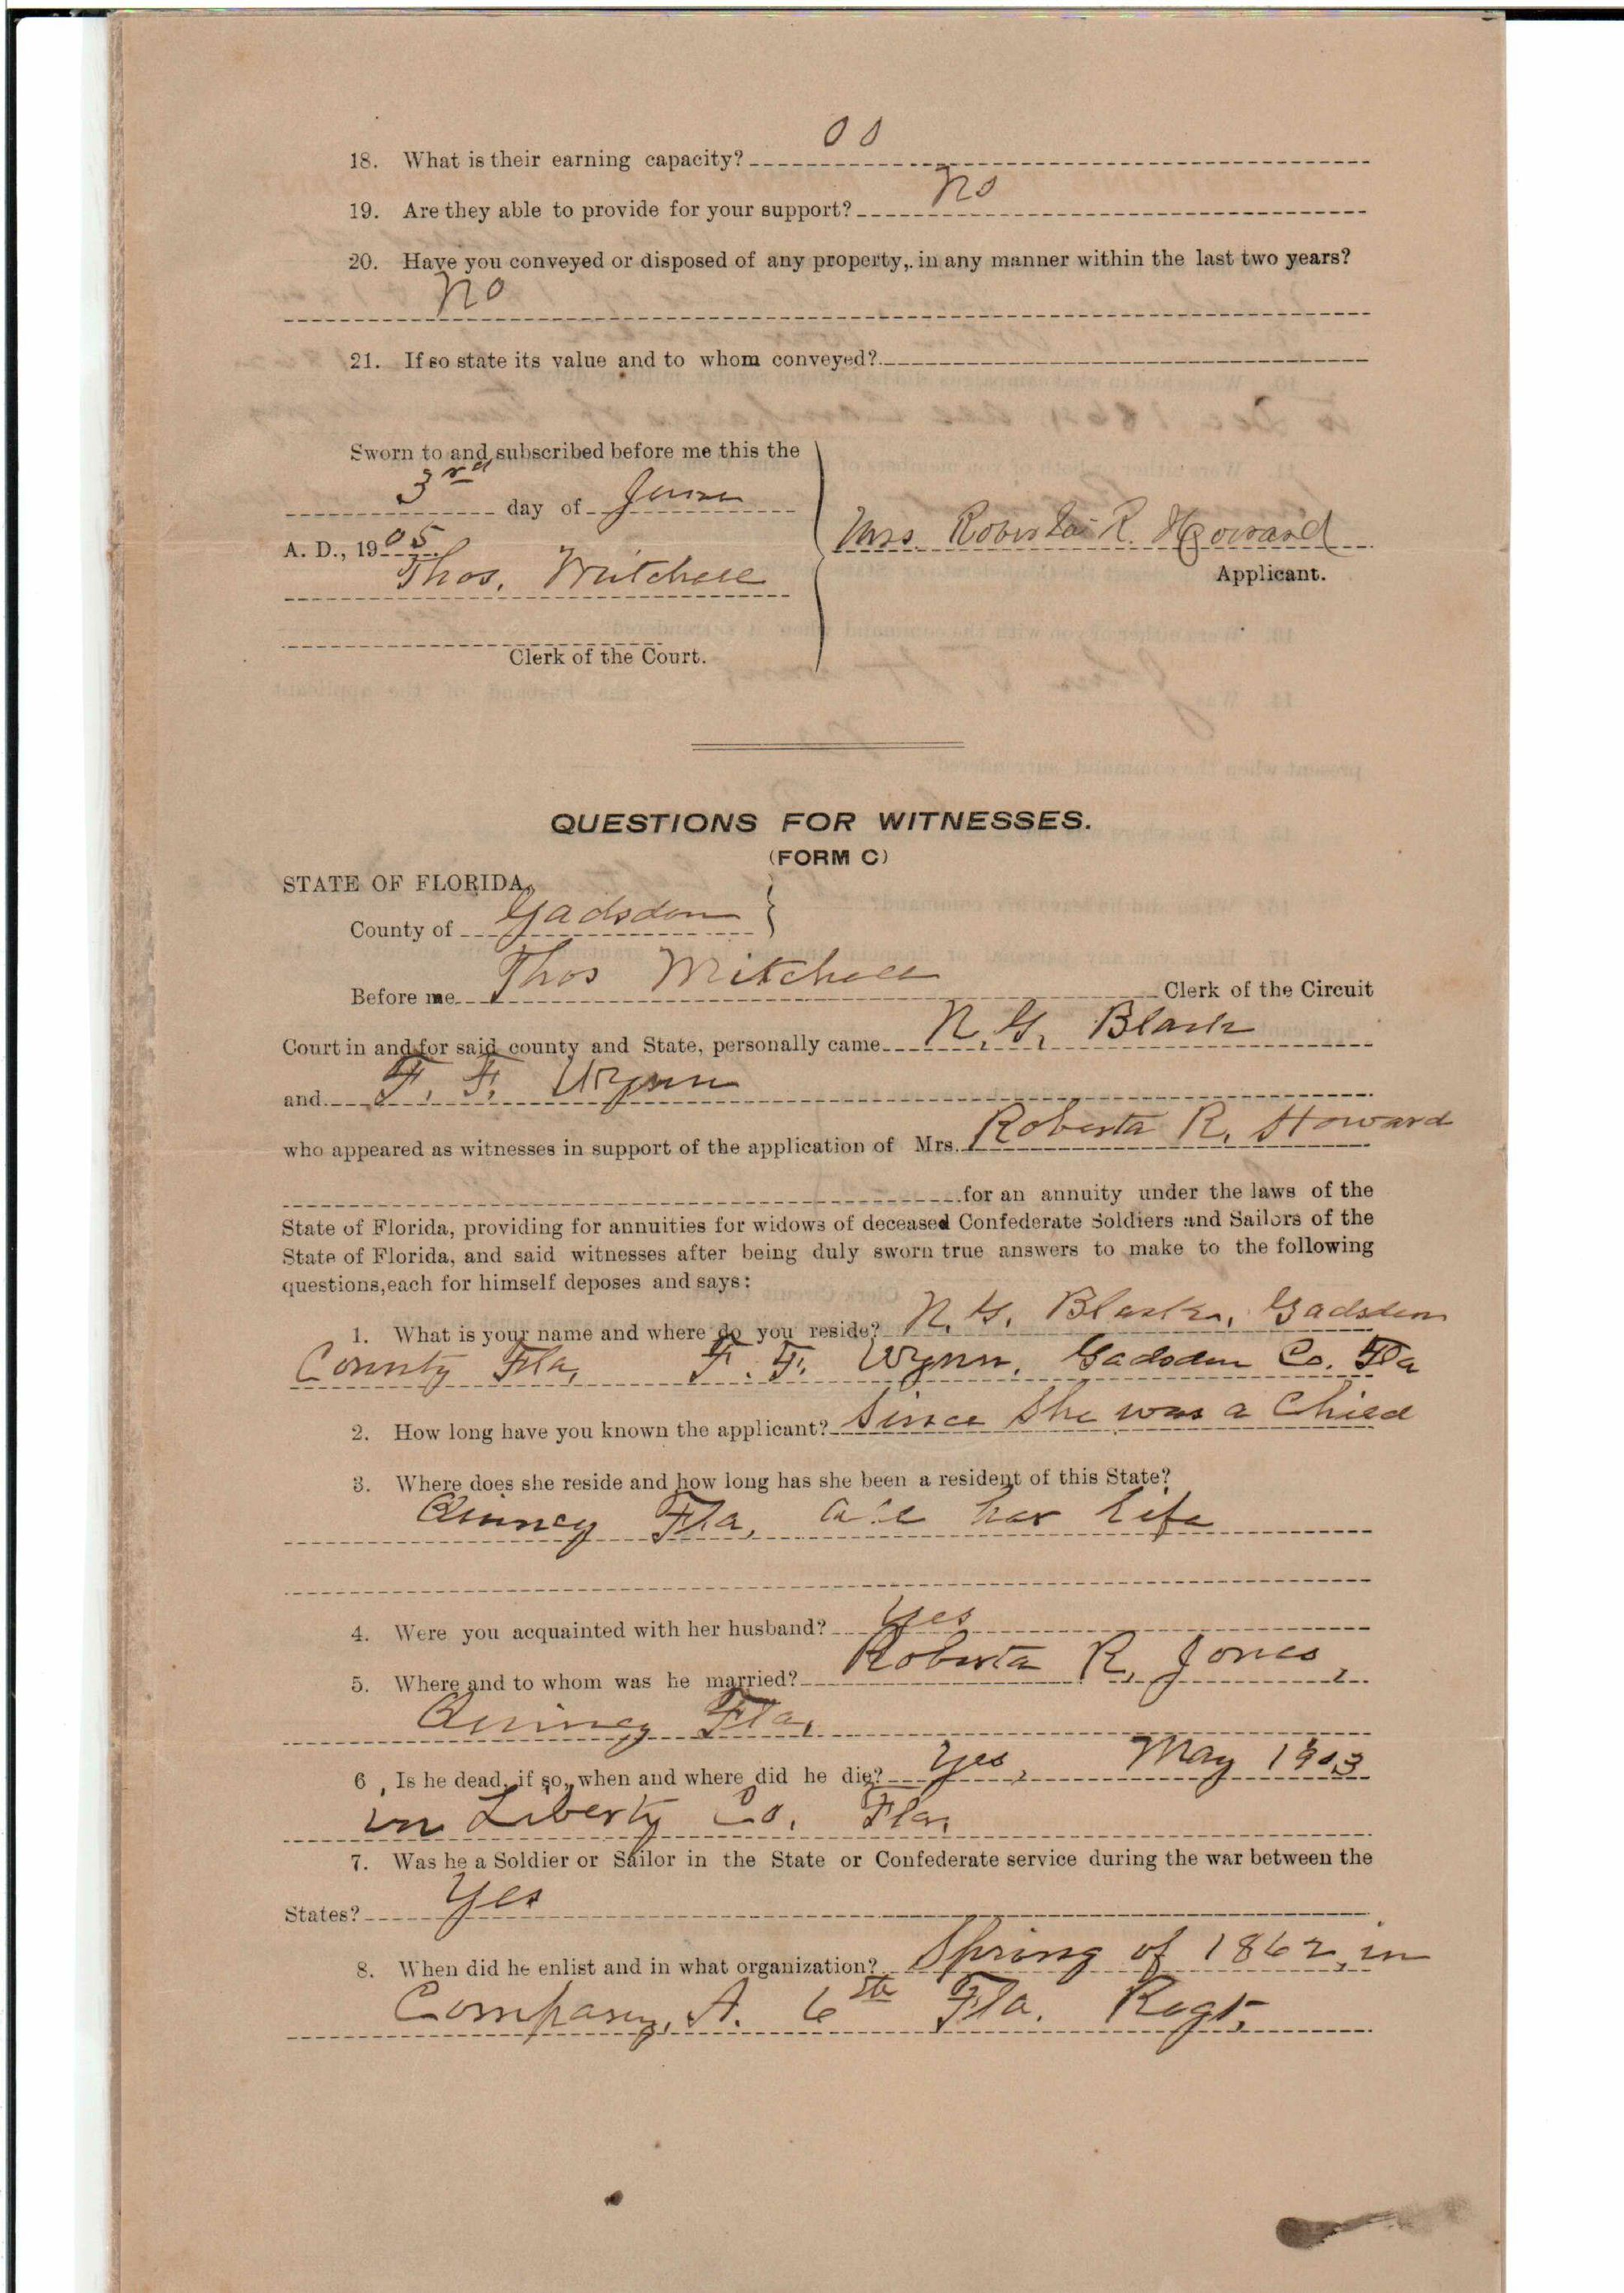 18. What is their earning capacity? 00
19. Are they able to provide for your support? no
20. Have you conveyed or disposed of any property, in any manner within the last two years?
no
21. If so state its value and to whom conveyed?
Sworn to and subscribed before me this the
3rd day of June
A. D., 1905.
Mrs Roberta R. Howard
Applicant.
Thos. Mitchell
Clerk of the Court.
QUESTIONS FOR WITNESSES.
(FORM C)
STATE OF FLORIDA,
County of Gadsden
Before me Thos Mitchell Clerk of the Circuit
Court in and for said county and State, personally came N. G. Black
and T. F. Wynn
who appeared as witnesses in support of the application of Mrs. Roberta R. Howard
for an annuity under the laws of the
State of Florida, providing for annuities for widows of deceased Confederate Soldiers and Sailors of the
State of Florida, and said witnesses after being duly sworn true answers to make to the following
questions, each for himself deposes and says:
1. What is your name and where do you reside? N. G. Black, Gadsden
County Fla, T. F. Wynn, Gadsden Co. Fla
2. How long have you known the applicant? Since She was a Child
3. Where does she reside and how long has she been a resident of this State?
Quincy Fla, all her life
4. Were you acquainted with her husband? Yes
5. Where and to whom was he married? Roberta R, Jones,
Quincy Fla,
6, Is he dead, if so, when and where did he die? Yes, May 1903
in Liberty Co, Fla,
7. Was he a Soldier or Sailor in the State or Confederate service during the war between the
States? Yes
8. When did he enlist and in what organization? Spring of 1862, in
Company, A. 6th Fla. Regt,